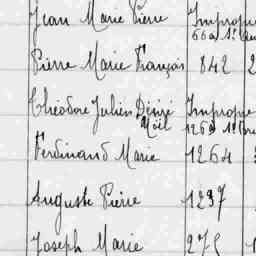 Jean Marie Pierre Impropre
Pierre Marie François 842
Théodore Julien Désiré Impropre
Noël
Ferdinand Marie 1264
Auguste Pierre 1237
Joseph Marie 275